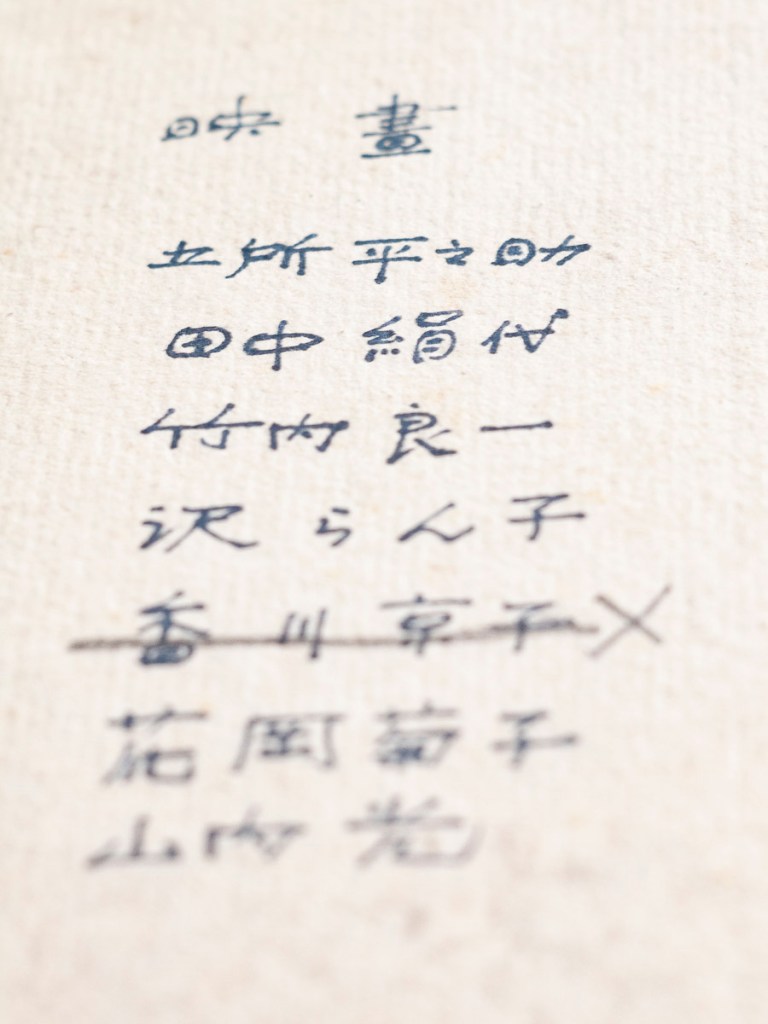 映畫
五所平之助
田中絹代
竹内良一
沢らん子
香川京子×
花岡菊子
山内光